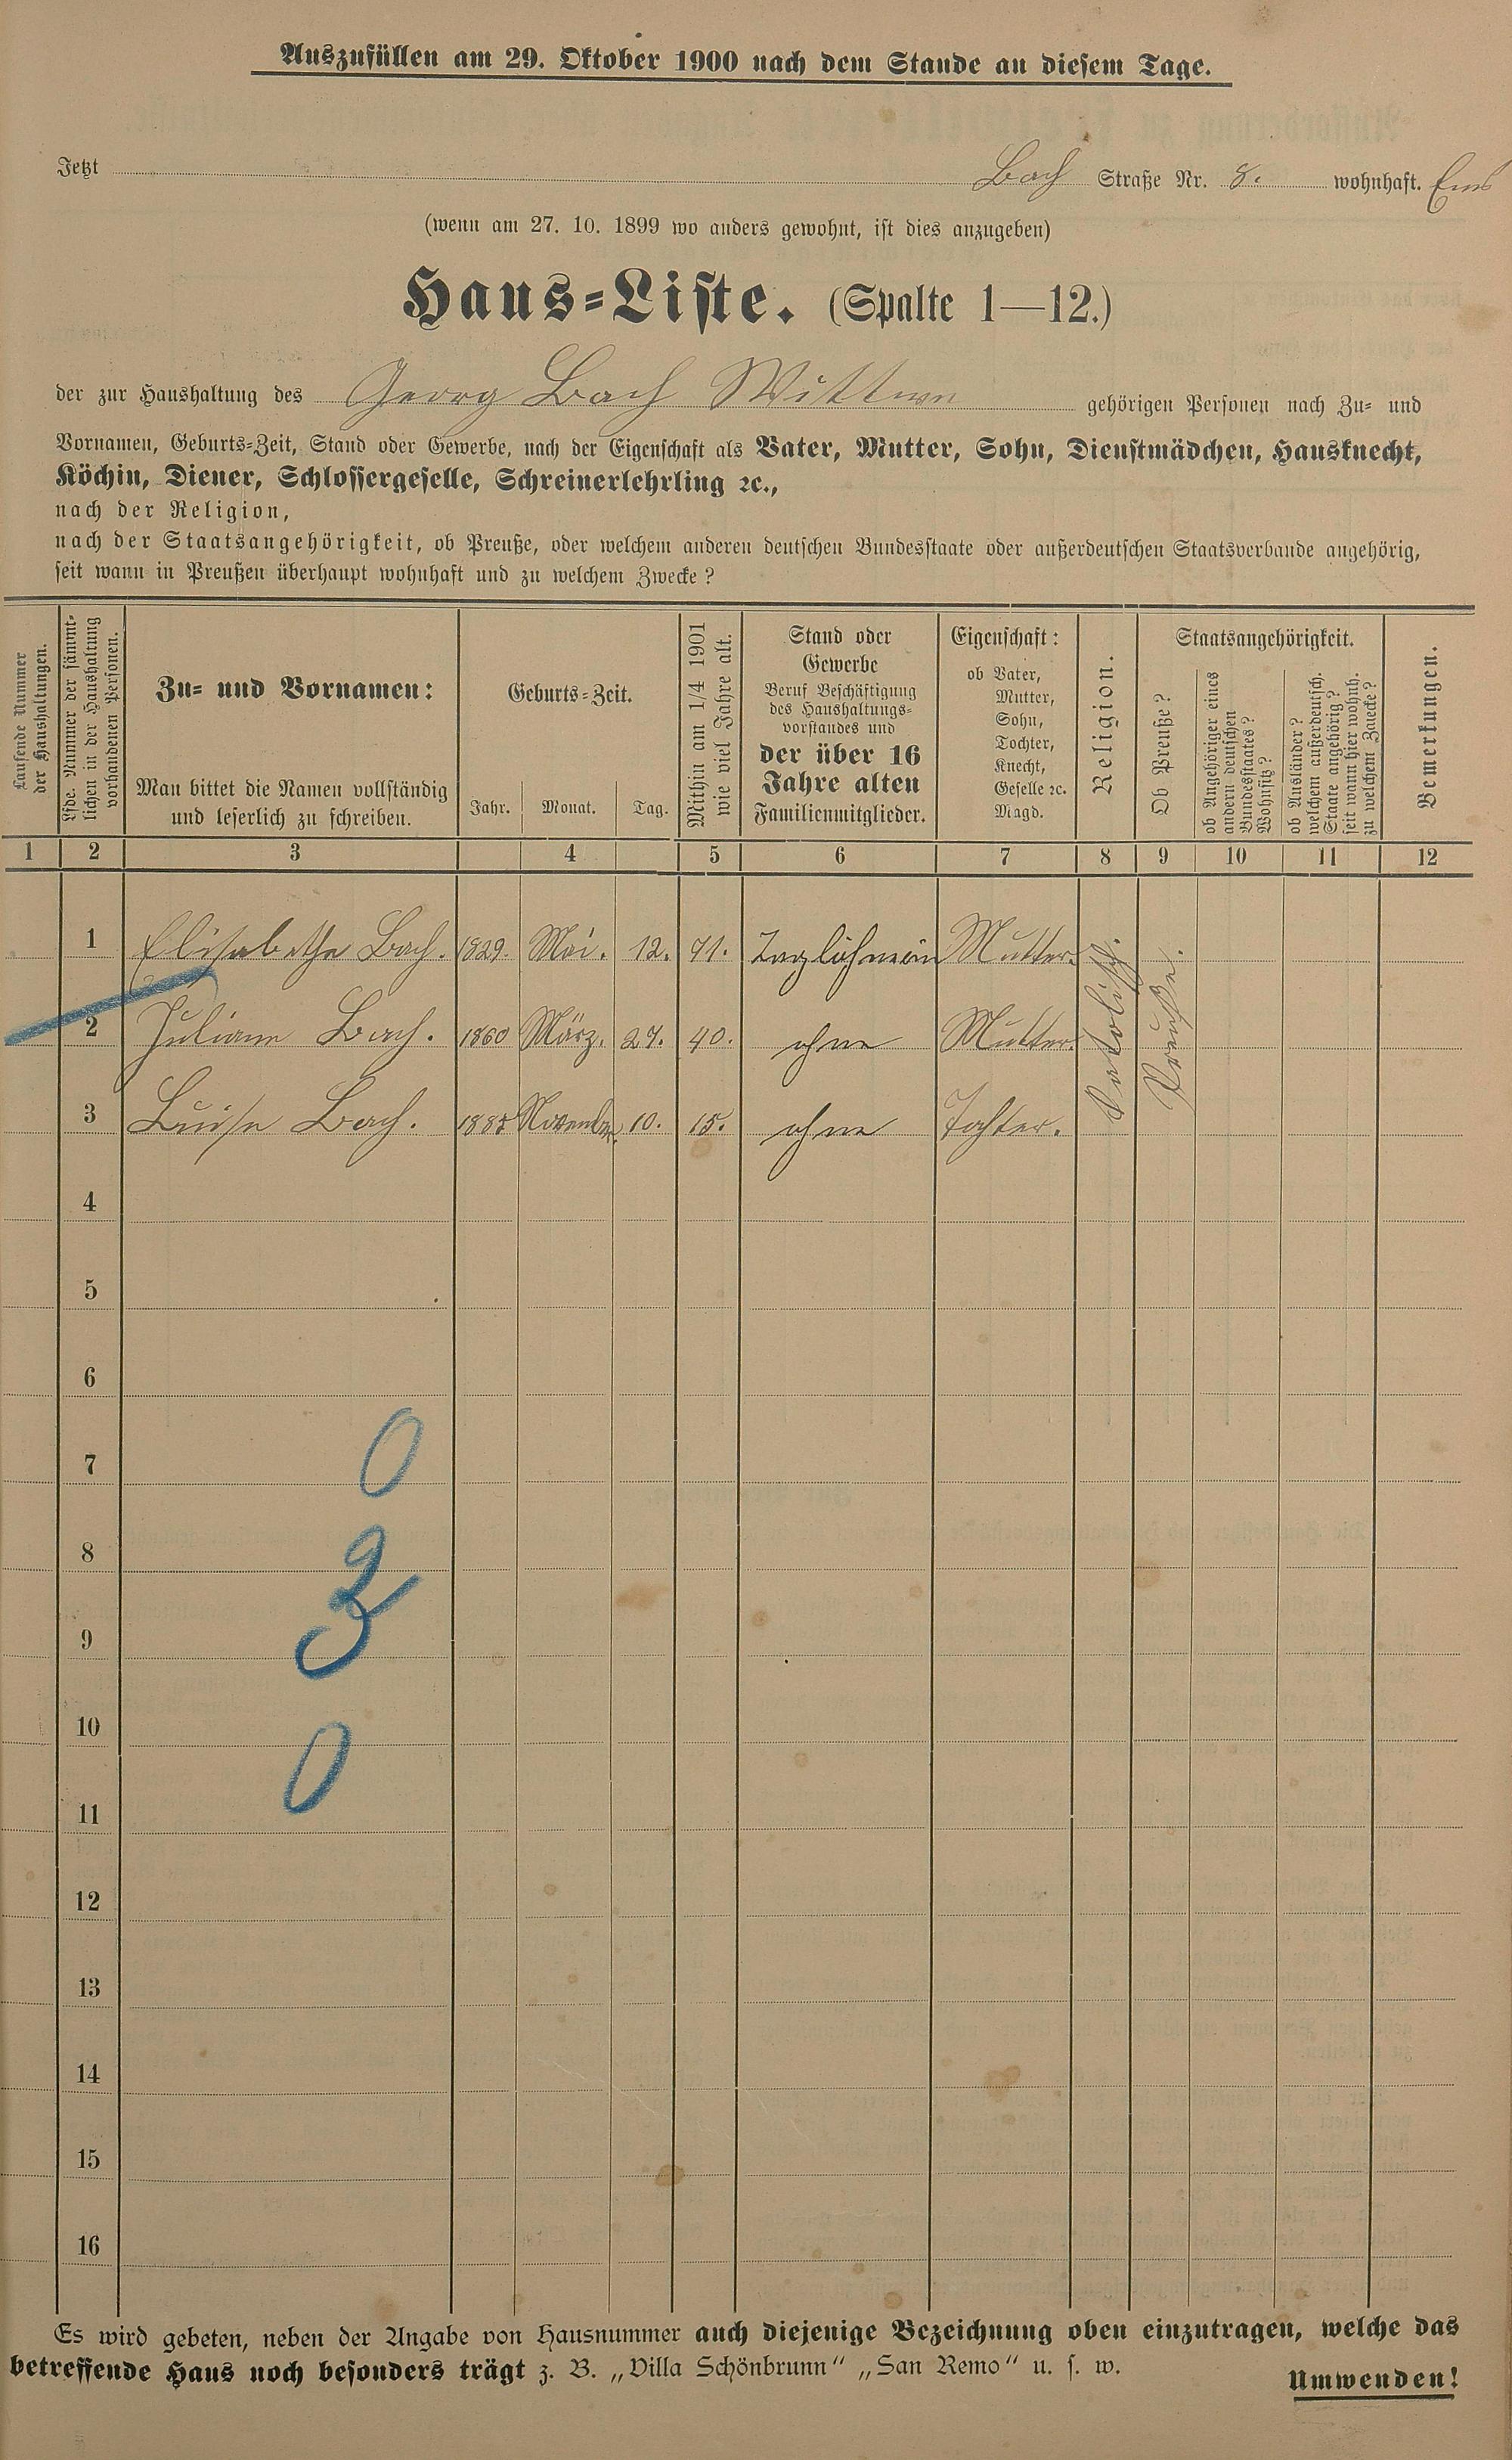 Auszufüllen am 29. Oktober 1900 nach dem Stande an diesem Tage.
Jetzt Bach Straße Nr. 8. wohnhaft. Ems
(wenn am 27. 10. 1899 wo anders gewohnt, ist dies anzugeben)
Haus=Liste. (Spalte 1—12.)
der zur Haushaltung des Georg Bach Wittwe gehörigen Personen nach Zu= und
Vornamen, Geburts=Zeit, Stand oder Gewerbe, nach der Eigenschaft als Vater, Mutter, Sohn, Dienstmädchen, Hausknecht,
Köchin, Diener, Schlossergeselle, Schreinerlehrling ꝛc.,
nach der Religion,
nach der Staatsangehörigkeit, ob Preuße, oder welchem anderen deutschen Bundesstaate oder außerdeutschen Staatsverbande angehörig,
seit wann in Preußen überhaupt wohnhaft und zu welchem Zwecke?
Laufende Nummer
der Haushaltungen.
Lfde. Nummer der sämmt-
lichen in der Haushaltung
vorhandenen Personen.
Zu= und Vornamen:
Man bittet die Namen vollständig
und leserlich zu schreiben.
Geburts=Zeit.
Jahr. Monat. Tag.
Mithin am 1/4 1901
wie viel Jahre alt.
Stand oder
Gewerbe
Beruf Beschäftigung
des Haushaltungs=
vorstandes und
der über 16
Jahre alten
Familienmitglieder.
Eigenschaft:
ob Vater,
Mutter,
Sohn,
Tochter,
Knecht,
Geselle ꝛc.
Magd.
Religion.
Staatsangehörigkeit.
Ob Preuße?
ob Angehöriger eines
andern deutschen
Bundesstaates?
Wohnsitz?
ob Ausländer?
welchem außerdeutsch.
Staate angehörig?
seit wann hier wohnh.
zu welchem Zwecke?
Bemerkungen.
1 2 3 4 5 6 7 8 9 10 11 12
1 Elisabetha Bach. 1829. Mai. 12. 71. Taglöhnerin Mutter.
2 Juliane Bach. 1860 März. 27. 40. ohne Mutter.
3 Luise Bach. 1885 November. 10. 15. ohne Tochter.
Katolisch.
Preuße.
4
5
6
7
0
8
3
9
10
0
11
12
13
14
15
16
Es wird gebeten, neben der Angabe von Hausnummer auch diejenige Bezeichnung oben einzutragen, welche das
betreffende Haus noch besonders trägt z. B. „Villa Schönbrunn“ „San Remo“ u. s. w.
Umwenden!